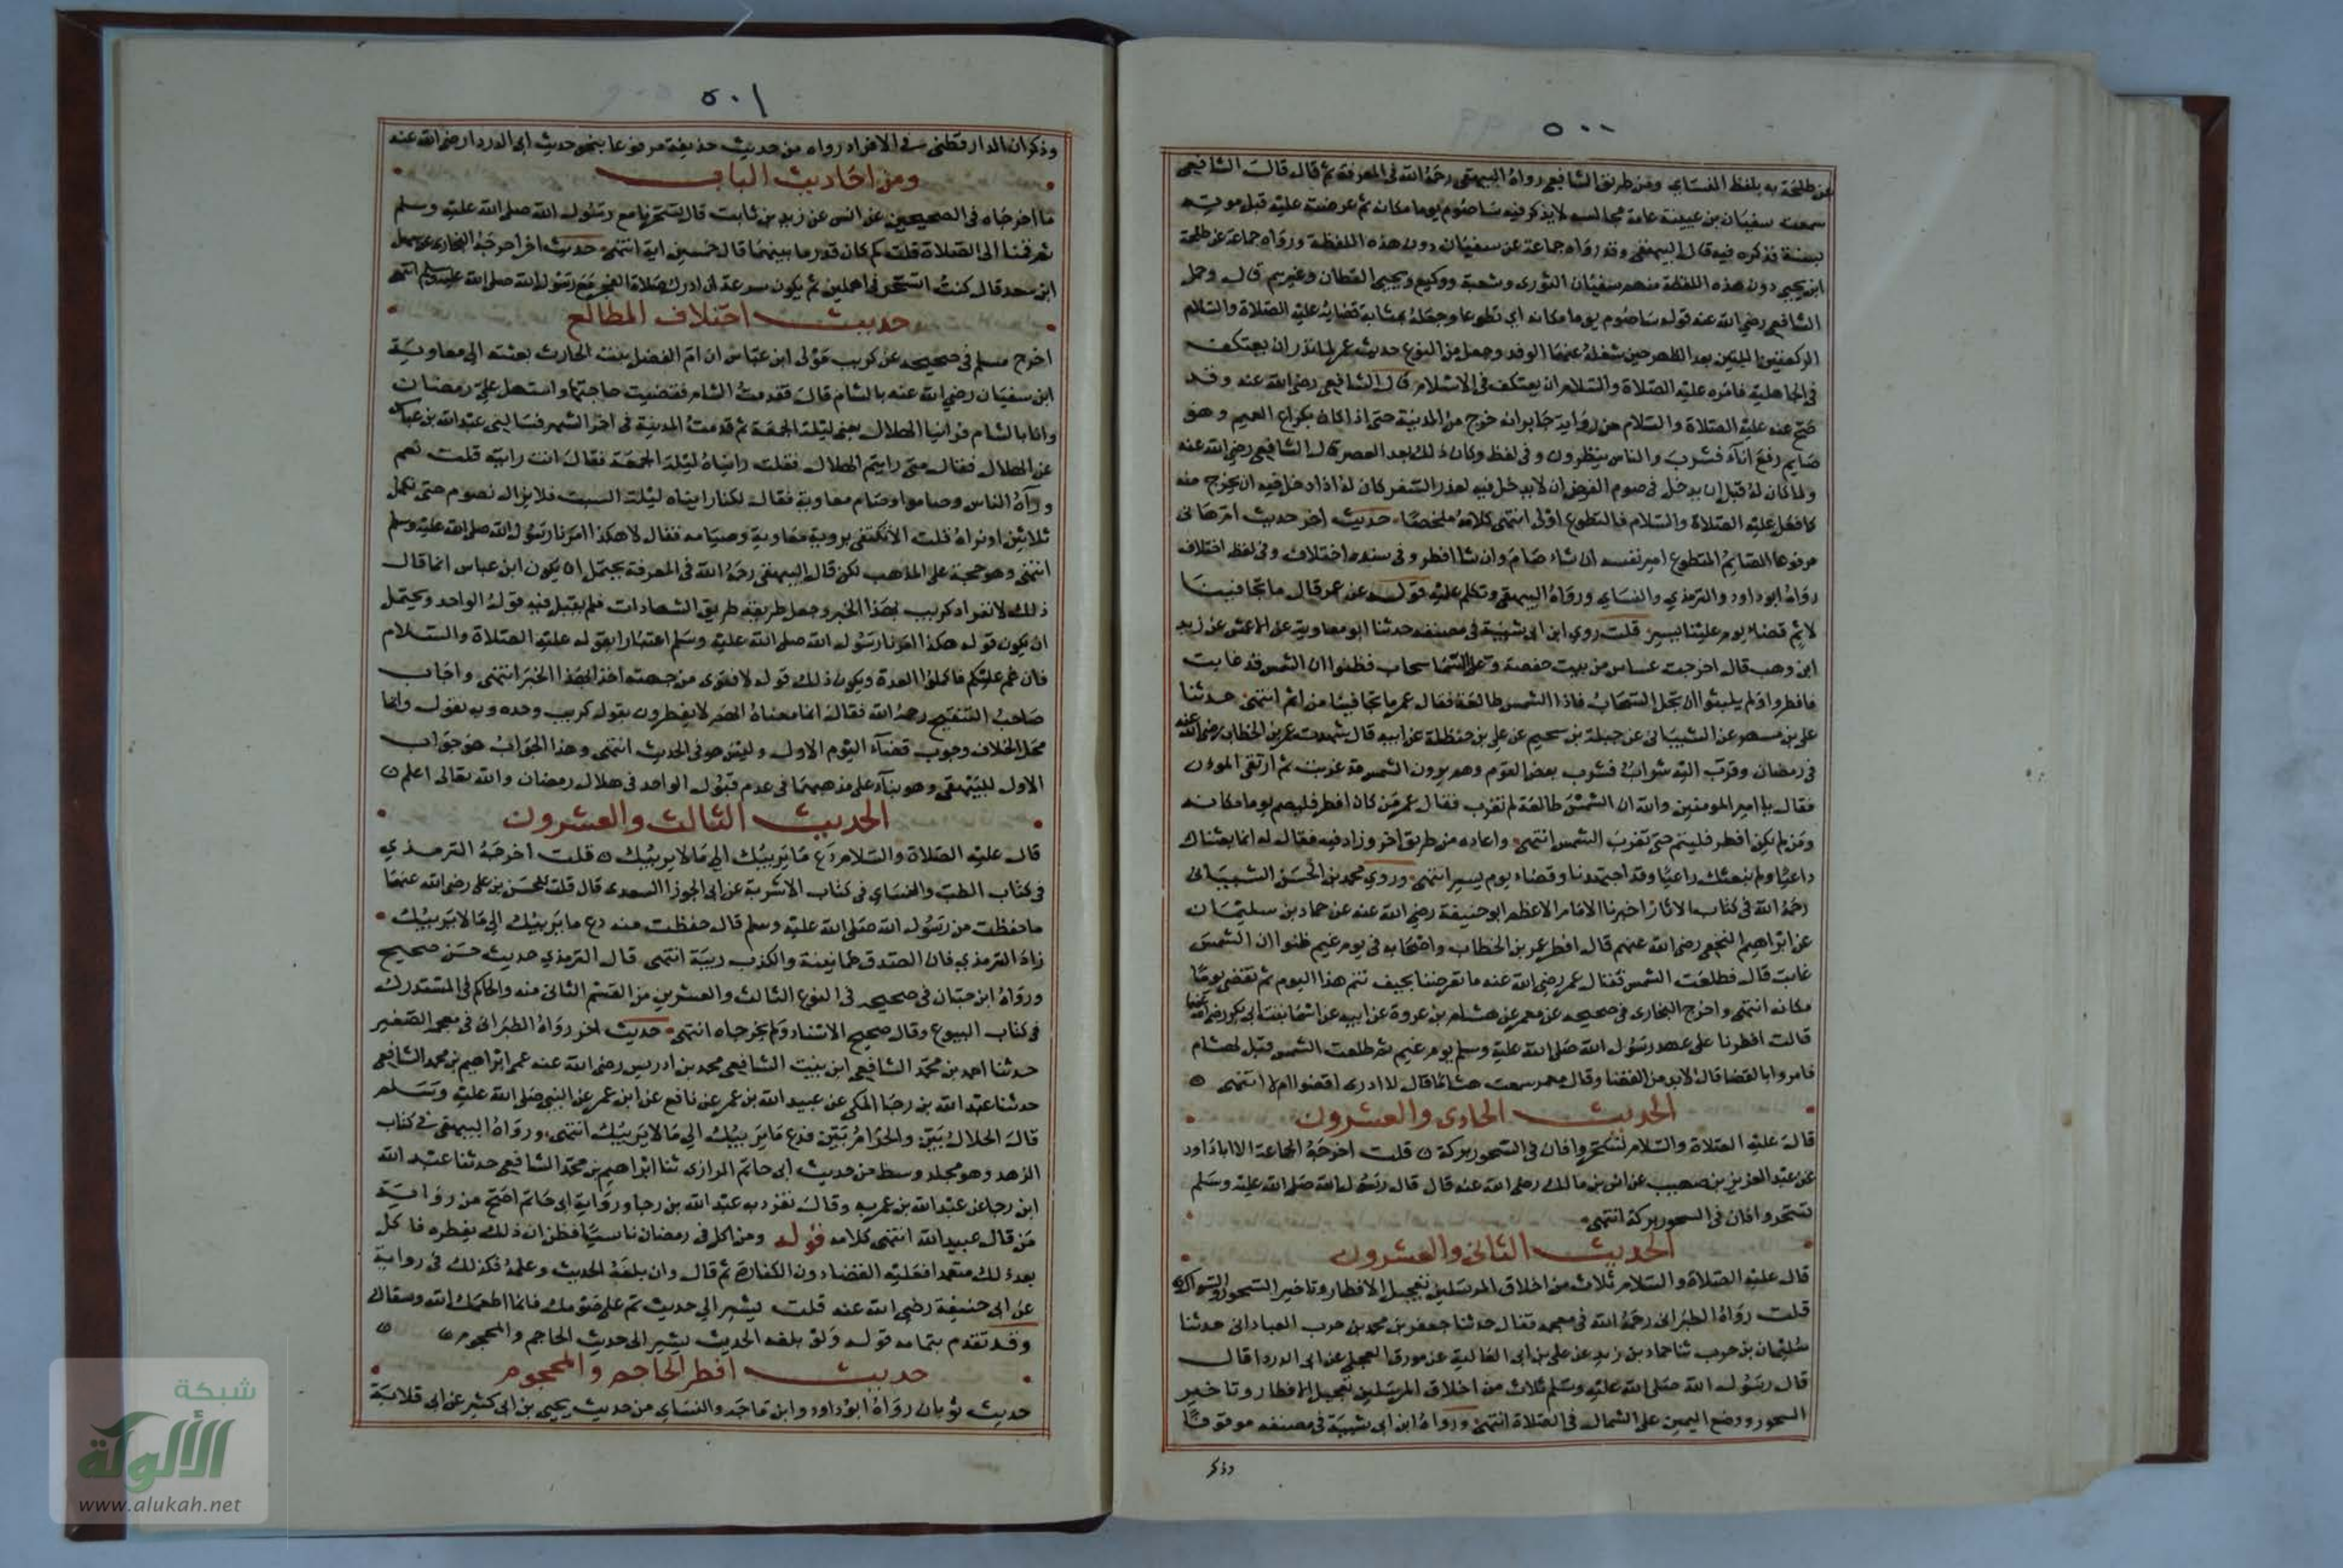 ٥٠٠
عن طلحة به بلفظ النساي ومن طريق الشافعي رواه البيهقي رحمه الله في المعرفة ثم قال قال الشافعي
سمعت سفيان بن عيينة عامة مجالسه لا يذكر فيه سأصوم يوما مكانه ثم عرضته عليه قبل موته
بسنة فذكره فيه قال البيهقي وقد رواه جماعة عن سفيان دون هذه اللفظة ورواه جماعة عن طلحة
ابن يحيى دون هذه اللفظة منهم سفيان الثوري وشعبة ووكيع ويحيى القطان وغيرهم قال وحمل
الشافعي رضي الله عنه قوله سأصوم يوما مكانه اي تطوعا وجعله بمثابة قضائه عليه الصلاة والسلام
الركعتين اللتين بعد الظهر حين شغله عنهما الوفد وجعل من النوع حديث عمر لما نذر ان يعتكف
في الجاهلية فامره عليه الصلاة والسلام ان يعتكف في الاسلام قال الشافعي رضي الله عنه وقد
صح عنه عليه الصلاة والسلام من رواية جابر انه خرج من المدينة حتى اذا كان بكراع الغميم وهو
صايم رفع انآء فشرب والناس ينظرون وفي لفظ وكان ذلك بعد العصر قال الشافعي رضي الله عنه
ولما كان له قبل ان يدخل في صوم الفرض ان لا يدخل فيه لعذر السفر كان له اذا دخل فيه ان يخرج منه
كما فعل عليه الصلاة والسلام فالتطوع اولى انتهى كلامه ملخصا حديث اخر حديث ام هانى
مرفوعا الصايم المتطوع امير نفسه ان شاء صام وان شا افطر وفي سنده اختلاف وفي لفظه اختلاف
رواه ابو داود والترمذي والنساي ورواه البيهقي وتكلم عليه قوله عن عمر قال ما تجانفنا
لاثم قضاء يوم علينا يسير قلت روى ابن ابي شيبة في مصنفه حدثنا ابو معاوية عن الاعمش عن زيد
ابن وهب قال اخرجت عساس من بيت حفصة وعلى السما سحاب فظنوا ان الشمس قد غابت
فافطروا ولم يلبثوا ان تجلى السحاب فاذا الشمس طالعة فقال عمر ما تجانفنا من اثم انتهى حدثنا
علي بن مسهر عن الشيبانى عن جبلة بن سحيم عن علي بن حنظلة عن ابيه قال شهدت عمر بن الخطاب رضي الله عنه
في رمضان وقرب اليه شراب فشرب بعض القوم وهم يرون الشمس قد غربت ثم ارتقى الموذن
فقال يا امير المومنين والله ان الشمس طالعة لم تغرب فقال عمر من كان افطر فليصم يوما مكانه
ومن لم يكن افطر فليتم حتى تغرب الشمس انتهى واعاده من طريق اخر وزاد فيه فقال له انما بعثناك
داعيا ولم نبعثك راعيا وقد اجتهدنا وقضاء يوم يسير انتهى وروى محمد بن الحسن الشيبانى
رحمه الله في كتاب الاثار اخبرنا الامام الاعظم ابو حنيفة رضي الله عنه عن حماد بن سليمان
عن ابراهيم النخعي رضي الله عنهم قال افطر عمر بن الخطاب واصحابه في يوم غيم ظنوا ان الشمس
غابت قال فطلعت الشمس فقال عمر رضي الله عنه ما تعرضنا بجنف نتم هذا اليوم ثم نقضي يوما
مكانه انتهى واخرج البخارى في صحيحه عن معمر عن هشام بن عروة عن ابيه عن اسما بنت ابي بكر رضي الله عنها
قالت افطرنا على عهد رسول الله صلى الله عليه وسلم يوم غيم ثم طلعت الشمس قيل لهشام
فامروا بالقضا قال لا بد من القضا وقال معمر سمعت هشاما قال لا ادرى اقضوا ام لا انتهى
الحديث الحادى والعشرون
قال عليه الصلاة والسلام تسحروا فان في السحور بركة قلت اخرجه الجماعة الا ابا داود
عن عبد العزيز بن صهيب عن انس بن مالك رضي الله عنه قال قال رسول الله صلى الله عليه وسلم
تسحروا فان في السحور بركة انتهى
الحديث الثانى والعشرون
قال عليه الصلاة والسلام ثلاث من اخلاق المرسلين تعجيل الافطار وتاخير السحور والسواك
قلت رواه الطبرانى رحمه الله في معجمه فقال حدثنا جعفر بن محمد بن حرب العبادانى حدثنا
سليمان بن حرب ثنا حماد بن زيد عن علي بن ابى العالية عن مورق العجلي عن ابى الدردا قال
قال رسول الله صلى الله عليه وسلم ثلاث من اخلاق المرسلين تعجيل الافطار وتاخير
السحور ووضع اليمين على الشمال في الصلاة انتهى ورواه ابن ابى شيبة في مصنفه موقوفا
وذكر
٥٠١
وذكر ان الدارقطنى في الافراد رواه من حديث حذيفة مرفوعا بنحو حديث ابى الدرداء رضي الله عنه
ومن احاديث الباب
ما اخرجاه في الصحيحين عن انس عن زيد بن ثابت قال تسحرنا مع رسول الله صلى الله عليه وسلم
ثم قمنا الى الصلاة قلت كم كان قدر ما بينهما قال خمسين اية انتهى حديث اخر اخرجه البخارى عن سهل
ابن سعد قال كنت اتسحر في اهلي ثم يكون سرعة ان ادرك صلاة الفجر مع رسول الله صلى الله عليه وسلم انتهى
حديث اختلاف المطالع
اخرج مسلم في صحيحه عن كريب مولى ابن عباس ان ام الفضل بنت الحارث بعثته الى معاوية
ابن سفيان رضي الله عنه بالشام قال فقدمت الشام فقضيت حاجتها واستهل علي رمضان
وانا بالشام فرأينا الهلال يعنى ليلة الجمعة ثم قدمت المدينة في اخر الشهر فسالنى عبد الله بن عباس
عن الهلال فقال متى رايتم الهلال فقلت رايناه ليلة الجمعة فقال انت رايته قلت نعم
ورآه الناس وصاموا وصام معاوية فقال لكنا رايناه ليلة السبت فلا نزال نصوم حتى نكمل
ثلاثين او نراه قلت الا تكتفى بروية معاوية وصيامه فقال لا هكذا امرنا رسول الله صلى الله عليه وسلم
انتهى وهو حجة على المذهب لكن قال البيهقي رحمه الله في المعرفة يحتمل ان يكون ابن عباس انما قال
ذلك لانفراد كريب بهذا الخبر وجعل طريقه طريق الشهادات فلم يقبل فيه قول الواحد ويحتمل
ان يكون قوله هكذا امرنا رسول الله صلى الله عليه وسلم اعتبارا بقوله عليه الصلاة والسلام
فان غم عليكم فاكملوا العدة ويكون ذلك قوله لا فتوى من جهته اخذ بهذا الخبر انتهى واجاب
صاحب التنقيح رحمه الله فقال انما معناه انهم لا يفطرون بقول كريب وحده وبه نقول وانما
محل الخلاف وجوب قضاء اليوم الاول وليس هو في الحديث انتهى وهذا الجواب هو جواب
الاول للبيهقي وهو بناء على مذهبهما في عدم قبول الواحد في هلال رمضان والله تعالى اعلم
الحديث الثالث والعشرون
قال عليه الصلاة والسلام دع ما يريبك الى ما لا يريبك قلت اخرجه الترمذي
في كتاب الطب والنساي في كتاب الاشربة عن ابى الجوزا السعدى قال قلت للحسن بن علي رضي الله عنهما
ما حفظت من رسول الله صلى الله عليه وسلم قال حفظت منه دع ما يريبك الى ما لا يريبك
زاد الترمذي فان الصدق طمانينة والكذب ريبة انتهى قال الترمذي حديث حسن صحيح
ورواه ابن حبان في صحيحه في النوع الثالث والعشرين من القسم الثانى منه والحاكم في المستدرك
في كتاب البيوع وقال صحيح الاسناد ولم يخرجاه انتهى حديث اخر رواه الطبرانى في معجمه الصغير
حدثنا احمد بن محمد الشافعي ابن بنت الشافعي محمد بن ادريس رضي الله عنه عمى ابراهيم بن محمد الشافعي
حدثنا عبد الله بن رجا المكى عن عبيد الله بن عمر عن نافع عن ابن عمر عن النبي صلى الله عليه وسلم
قال الحلال بين والحرام بين فدع ما يريبك الى ما لا يريبك انتهى ورواه البيهقي في كتاب
الزهد وهو مجلد وسط من حديث ابى حاتم الرازى ثنا ابراهيم بن محمد الشافعي حدثنا عبد الله
ابن رجا عن عبد الله بن عمر به وقال تفرد به عبد الله بن رجا ورواية ابى حاتم اصح من رواية
من قال عبيد الله انتهى كلامه قوله ومن اكل في رمضان ناسيا فظن ان ذلك يفطره فاكل
بعد ذلك متعمدا فعليه القضاء دون الكفارة ثم قال وان بلغه الحديث وعلمه فكذلك في رواية
عن ابى حنيفة رضي الله عنه قلت يشير الى حديث تم على صومك فانما اطعمك الله وسقاك
وقد تقدم بتمامه قوله ولو بلغه الحديث يشير الى حديث الحاجم والمحجوم
حديث افطر الحاجم والمحجوم
حديث ثوبان رواه ابو داود وابن ماجه والنساي من حديث يحيى بن ابى كثير عن ابى قلابة
شبكة
الألوكة
www.alukah.net